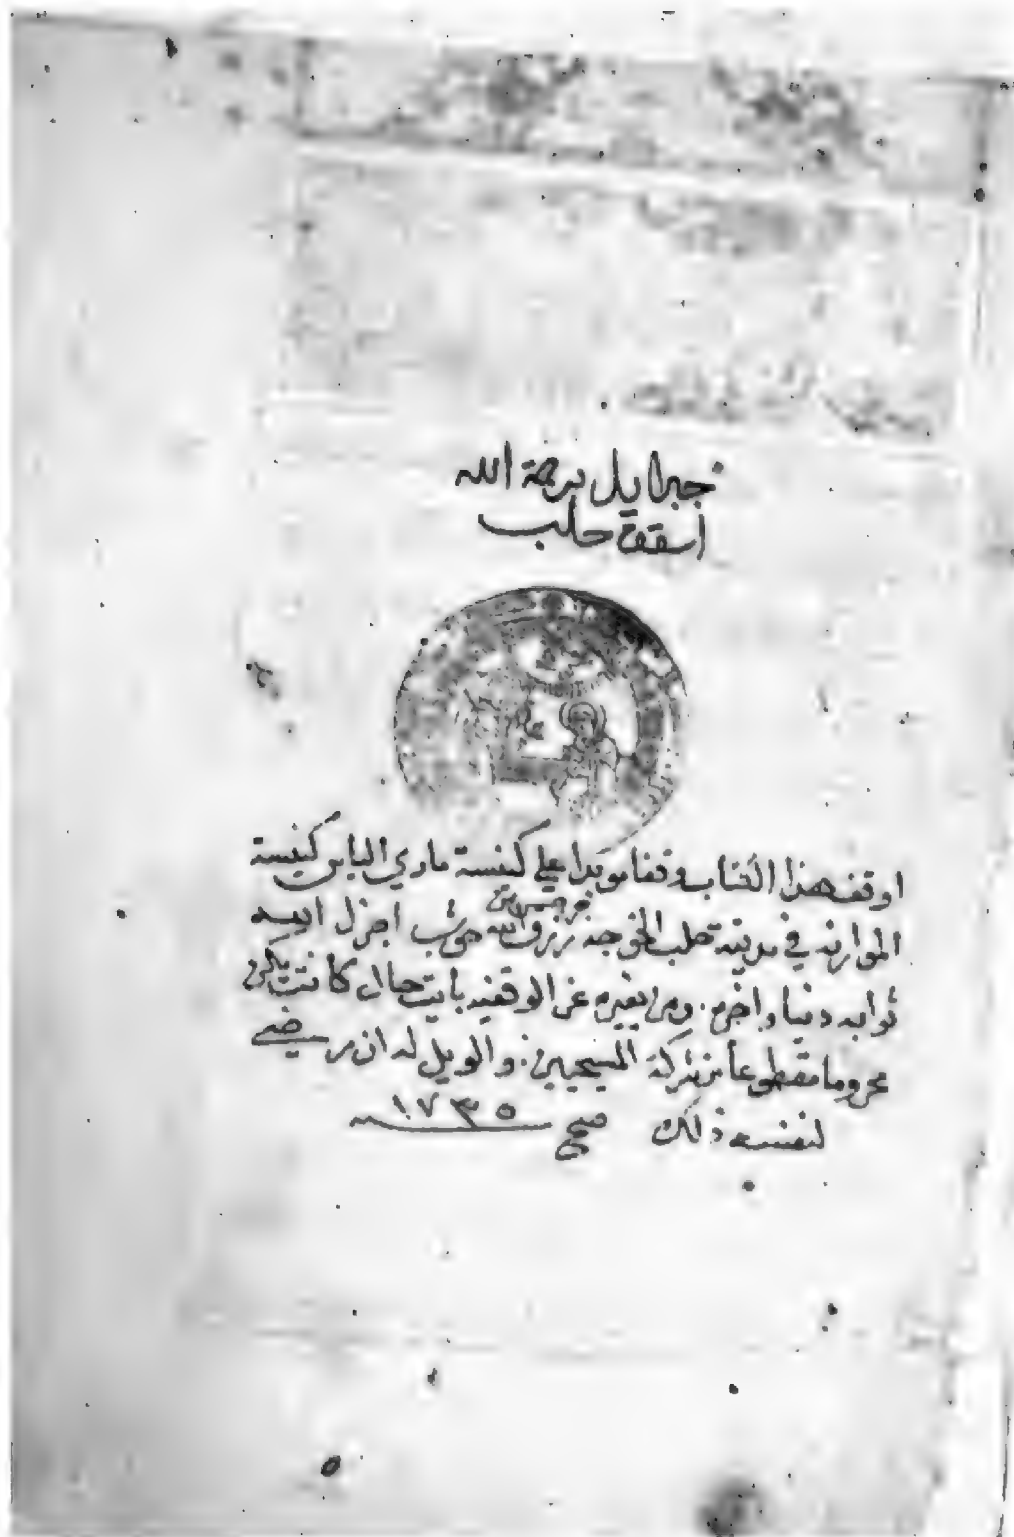 جبرايل برحمة الله
اسقف حلب
اوقف هذا الكتاب وقفا موبدا علي كنيسة ماري الياس كنيسة
الموارنه في مدينة حلب الخوجه جرجس بن رزق الله حوشب اجزل الله
ثوابه دنيا واخره. ومن يغيره عن الوقفيه بايت حال كانت يكن
محروما مقطوعا من شركة المسيحيين. والويل له ان رضي
لنفسه ذلك صح ١٧٣٥